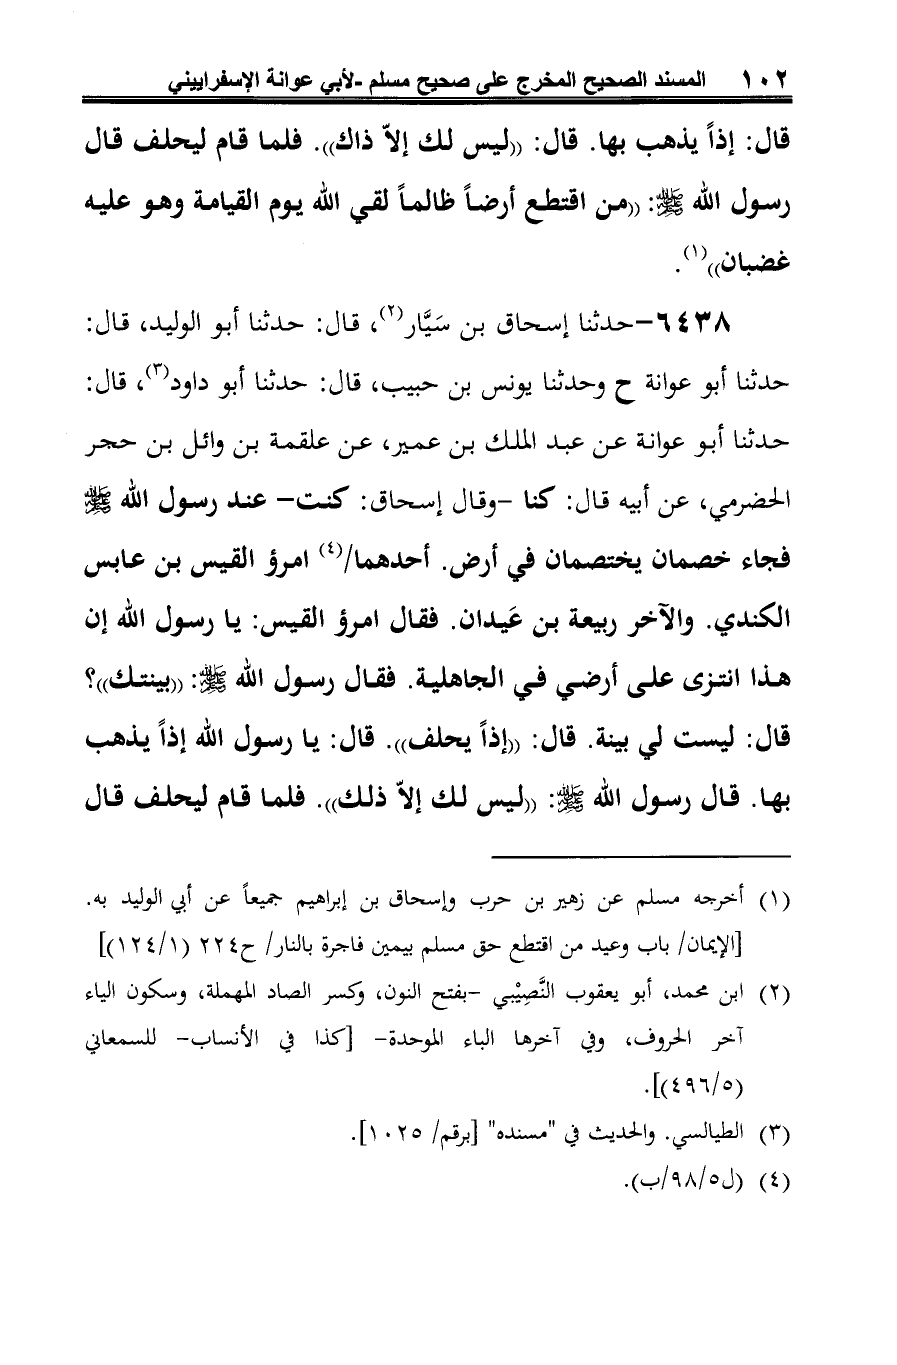 ١٠٢ المسند الصحيح المخرج على صحيح مسلم -لأبي عوانة الإسفراييني
قال: إذاً يذهب بها. قال: ((ليس لك إلاّ ذاك)). فلما قام ليحلف قال
رسول الله ﷺ: ((من اقتطع أرضاً ظالماً لقي الله يوم القيامة وهو عليه
غضبان))(١).
٦٤٣٨-حدثنا إسحاق بن سَيَّار(٢)، قال: حدثنا أبو الوليد، قال:
حدثنا أبو عوانة ح وحدثنا يونس بن حبيب، قال: حدثنا أبو داود(٣)، قال:
حدثنا أبو عوانة عن عبد الملك بن عمير، عن علقمة بن وائل بن حجر
الحضرمي، عن أبيه قال: كنا -وقال إسحاق: كنت- عند رسول الله ﷺ
فجاء خصمان يختصمان في أرض. أحدهما/(٤) امرؤ القيس بن عابس
الكندي. والآخر ربيعة بن عَيدان. فقال امرؤ القيس: يا رسول الله إن
هذا انتزى على أرضي في الجاهلية. فقال رسول الله ﷺ: ((بينتك))؟
قال: ليست لي بينة. قال: ((إذاً يحلف)). قال: يا رسول الله إذاً يذهب
بها. قال رسول الله ﷺ: ((ليس لك إلاّ ذلك)). فلما قام ليحلف قال
(١) أخرجه مسلم عن زهير بن حرب وإسحاق بن إبراهيم جميعاً عن أبي الوليد به.
[الإيمان/ باب وعيد من اقتطع حق مسلم بيمين فاجرة بالنار/ ح٢٢٤ (١٢٤/١)]
(٢) ابن محمد، أبو يعقوب النَّصِيْبي -بفتح النون، وكسر الصاد المهملة، وسكون الياء
آخر الحروف، وفي آخرها الباء الموحدة- [كذا في الأنساب- للسمعاني
(٤٩٦/٥)].
(٣) الطيالسي. والحديث في "مسنده" [برقم/ ١٠٢٥].
(٤) (ل٩٨/٥/ب).